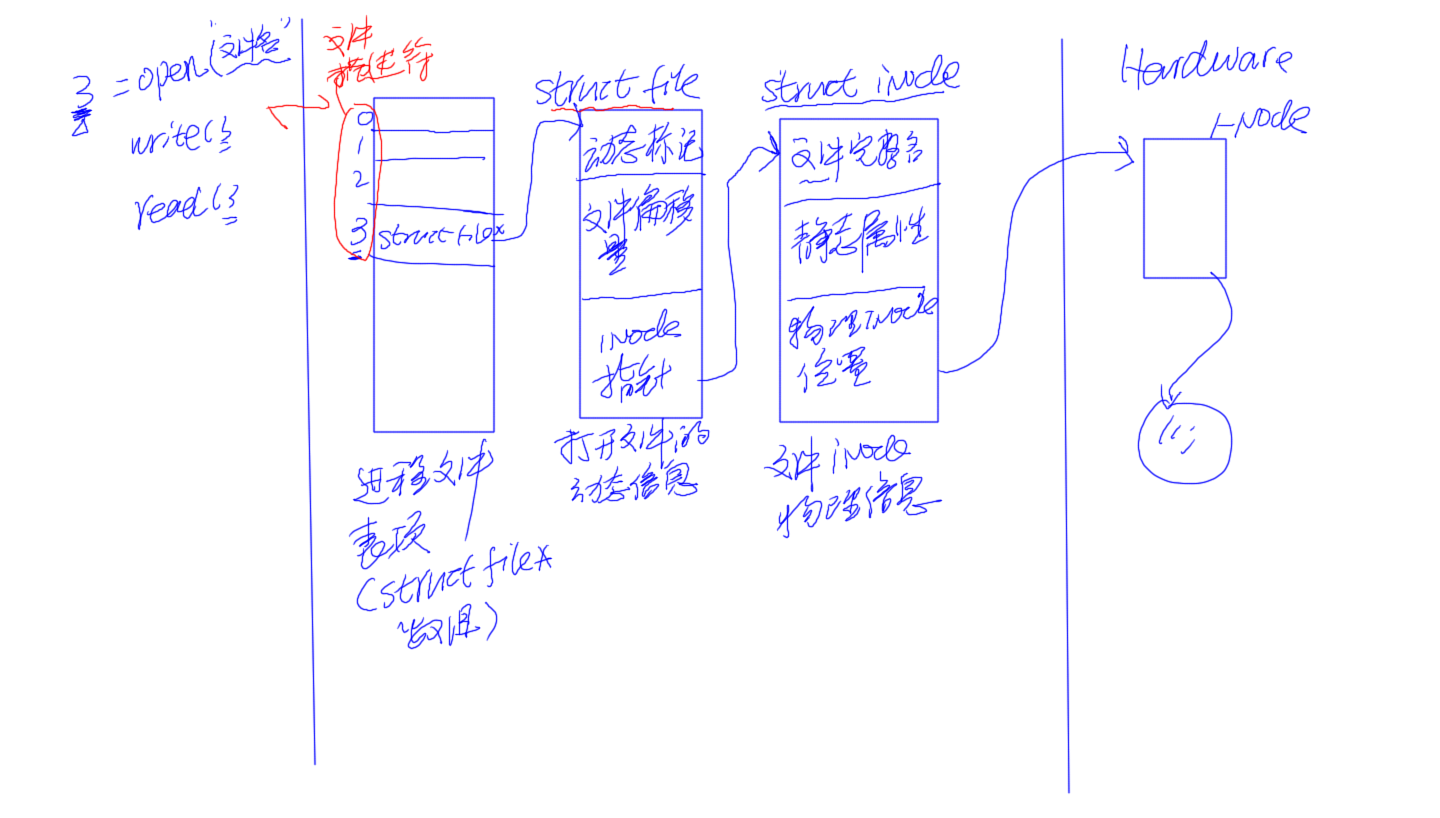 3 = open("文件名"
write(3
read(3
文件
描述符
0
1
2
3 struct file*
进程文件
表项
(struct file*
数组)
struct file
动态标记
文件偏移
量
inode
指针
打开文件的
动态信息
struct inode
文件完整名
静态属性
物理inode
位置
文件 inode
物理信息
Hardware
i-Node